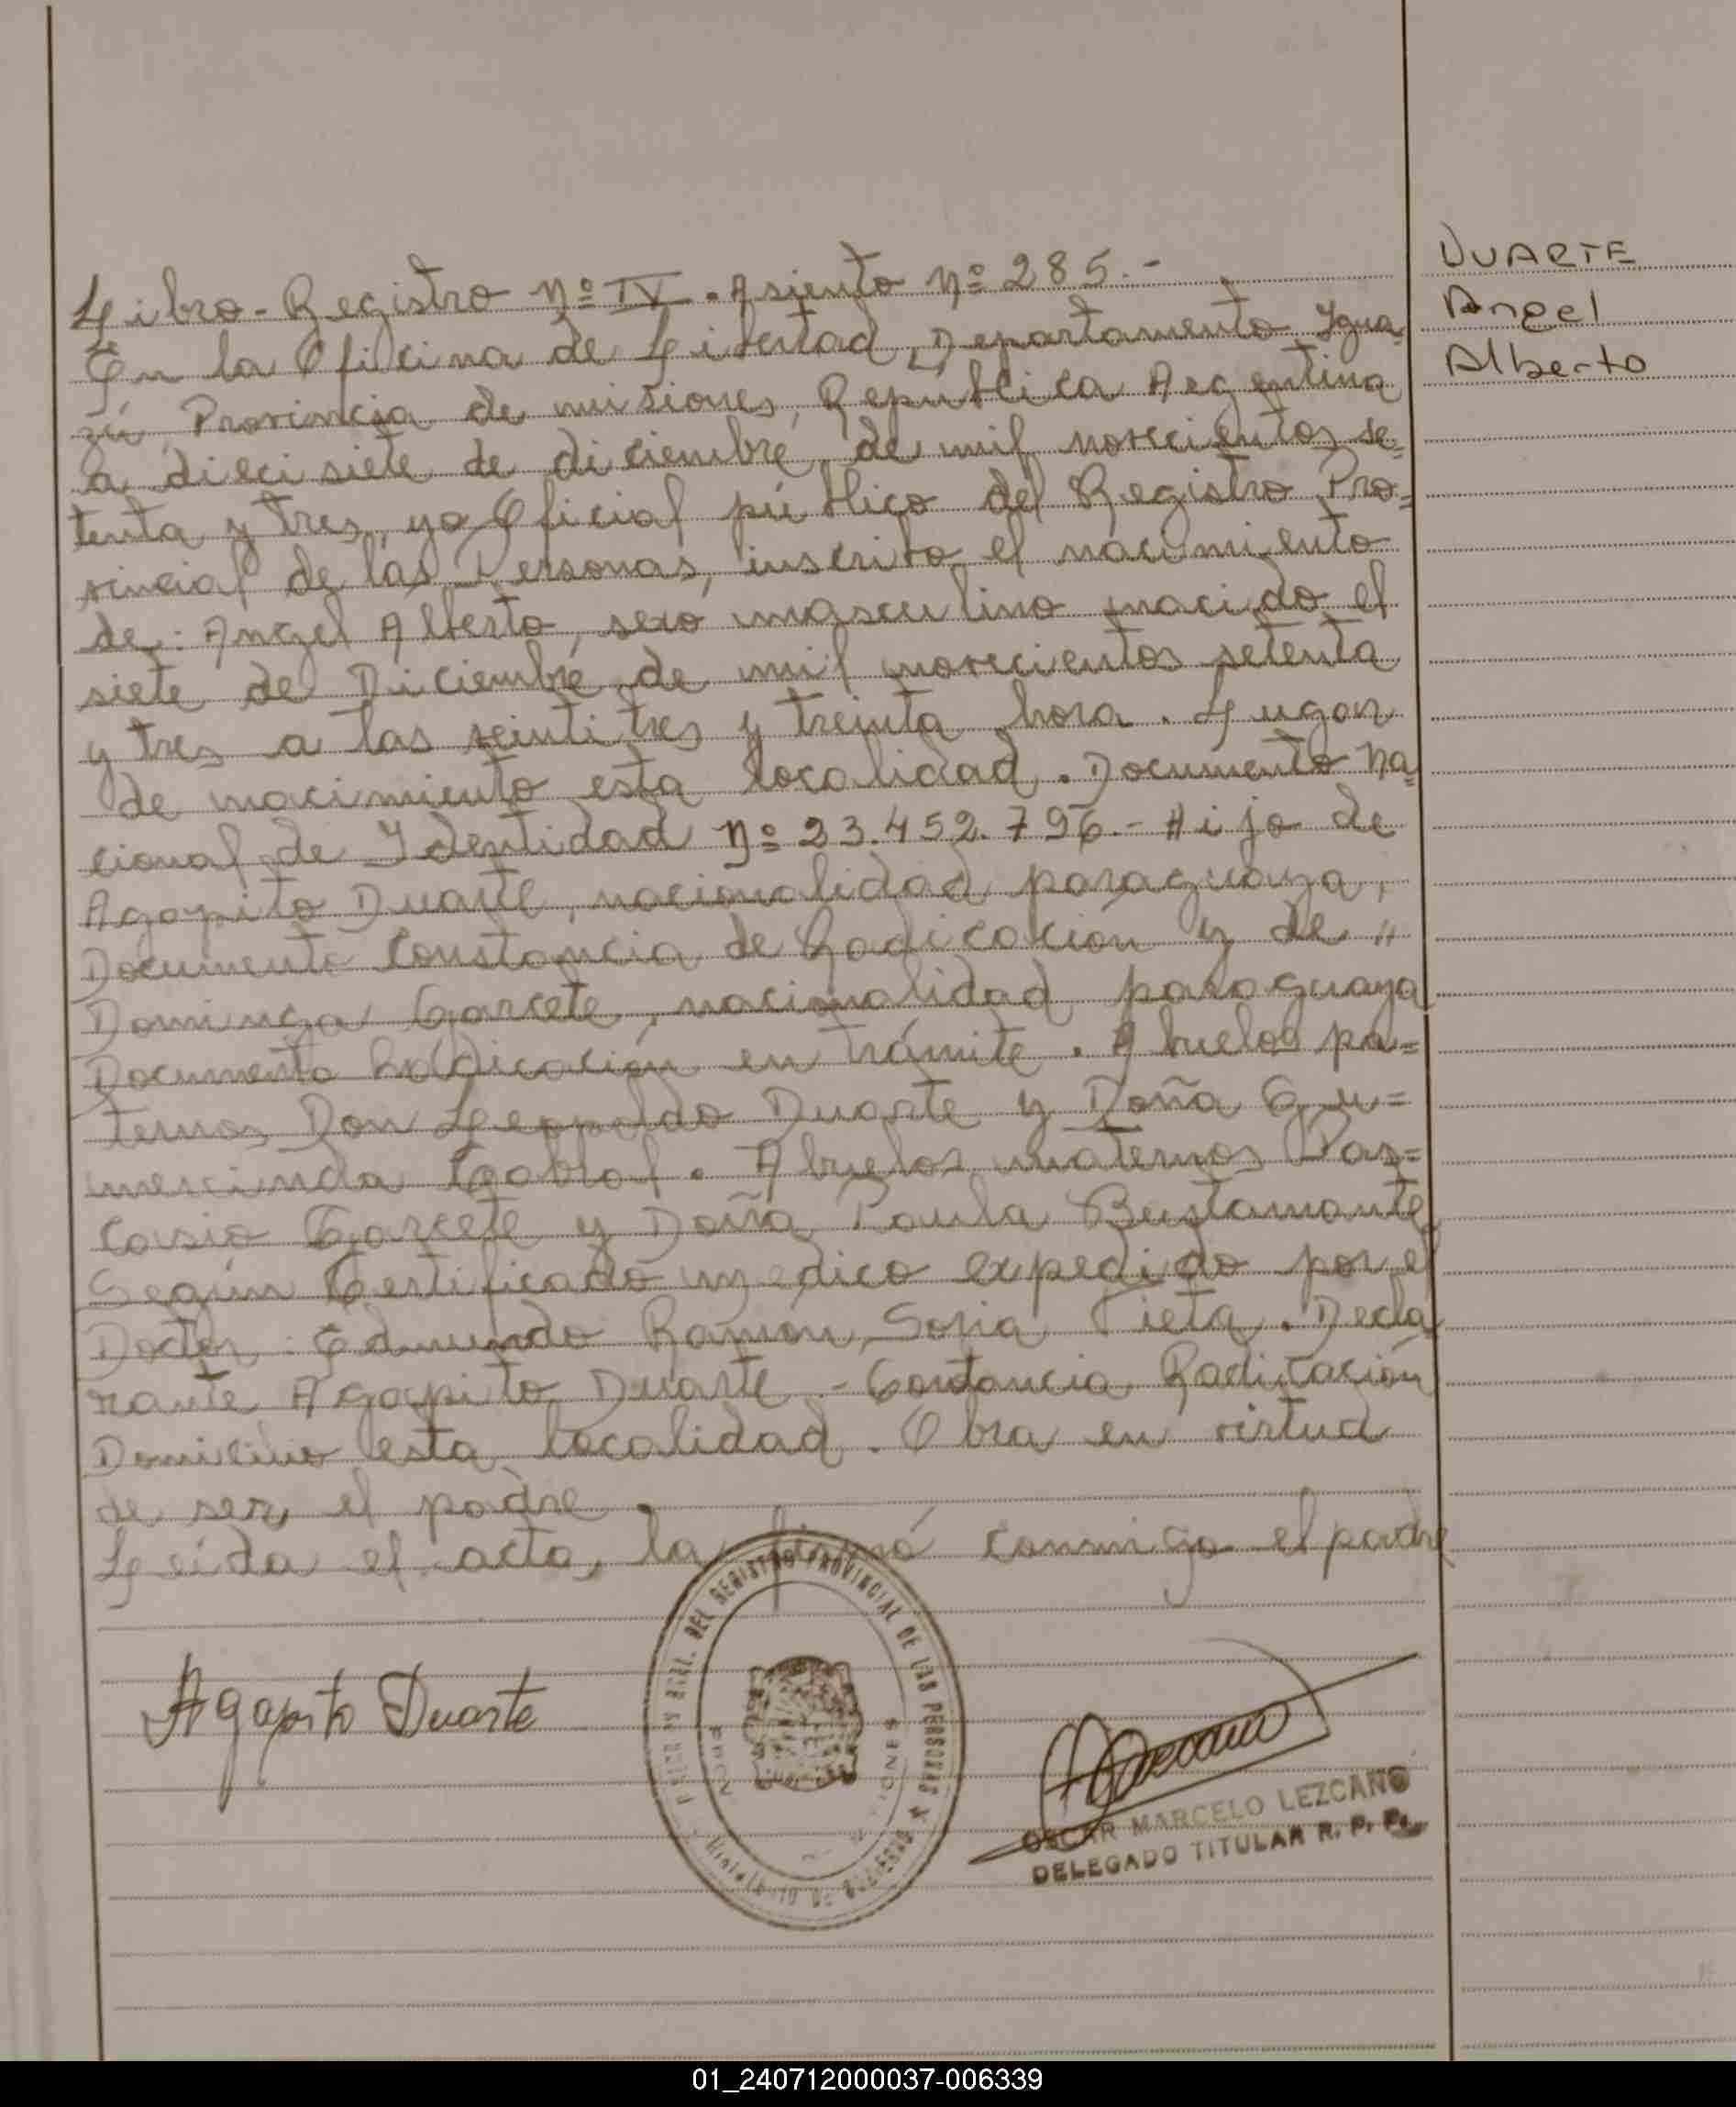 DUARTE
Angel
Alberto
Libro-Registro Nº IV. Asiento Nº 285.-
En la Oficina de Libertad, Departamento Igua-
zú Provincia de misiones, República Argentina
a dieci siete de diciembre de mil novecientos se=
tenta y tres, yo Oficial público del Registro Pro=
vincial de las Personas, inscribo el nacimiento
de: Angel Alberto, sexo masculino nacido el
siete de Diciembre de mil novecientos setenta
y tres a las veinti tres y treinta hora. Lugar
de nacimiento esta localidad. Documento Na=
cional de Identidad Nº 23.452.796.- Hijo de
Agapito Duarte, nacionalidad paraguaya,
Documento Constancia de Radicación y de "
Dominga Garcete, nacionalidad paraguaya
Documento Radicación en trámite. Abuelos pa=
ternos Don Leopoldo Duarte y Doña Gu=
mercinda. Abuelos maternos Pas=
casio Garcete y Doña Paula Bustamante
Según Certificado medico expedido por el
Doctor: Edmundo Ramón Soria Vieta. Decla
rante Agapito Duarte - Contancia Radicación
Domicilio esta localidad. Obra en virtud
de ser, el padre.
Leida el acta, la firmó conmigo el padre
Agapito Duarte
DEL REGISTRO PROVINCIAL DE LAS PERSONAS
OSCAR MARCELO LEZCANO
DELEGADO TITULAR R. P. P.
01_240712000037-006339